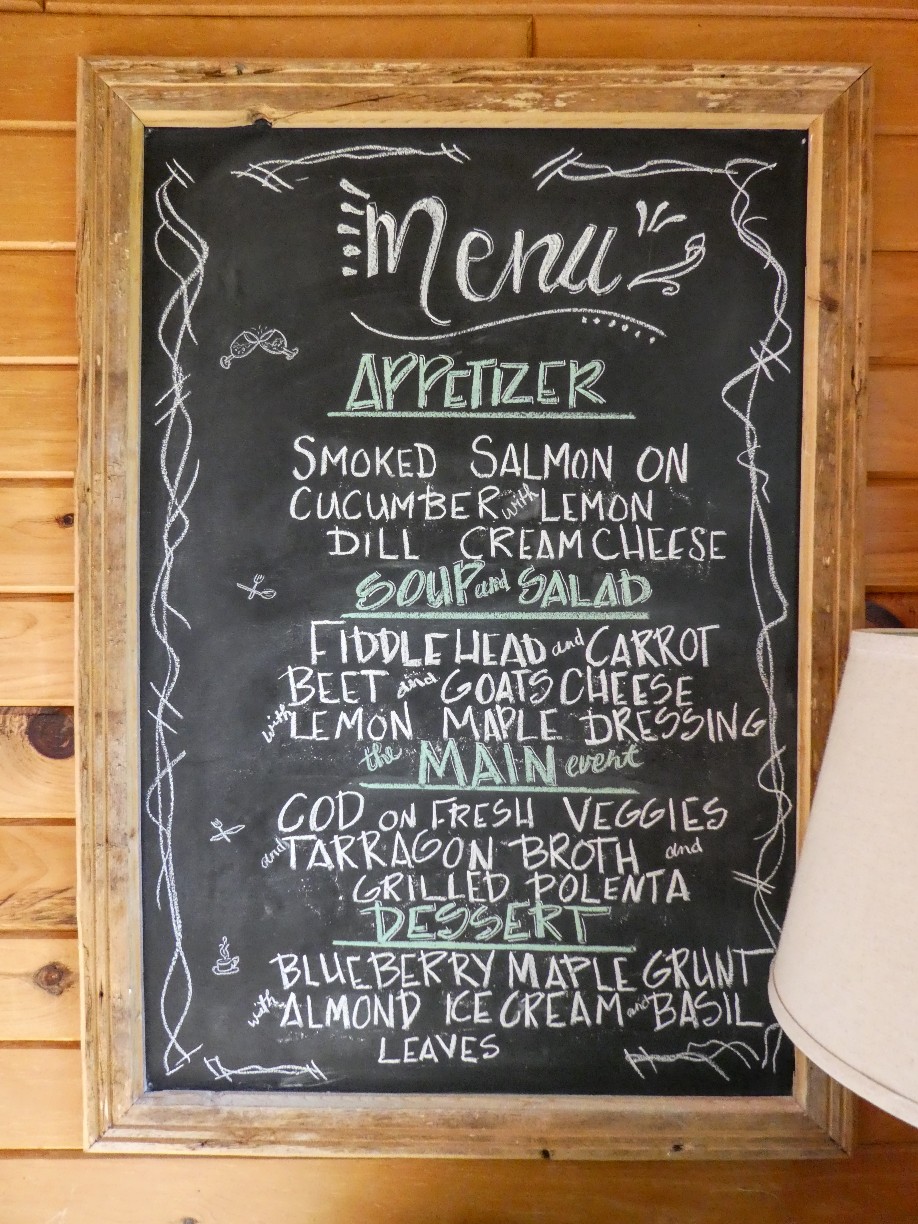 Menu
APPETIZER
SMOKED SALMON ON
CUCUMBER with LEMON
DILL CREAM CHEESE
SOUP and SALAD
FIDDLEHEAD and CARROT
BEET and GOATS CHEESE
with LEMON MAPLE DRESSING
the MAIN event
COD ON FRESH VEGGIES
and TARRAGON BROTH and
GRILLED POLENTA
DESSERT
BLUEBERRY MAPLE GRUNT
with ALMOND ICE CREAM and BASIL
LEAVES